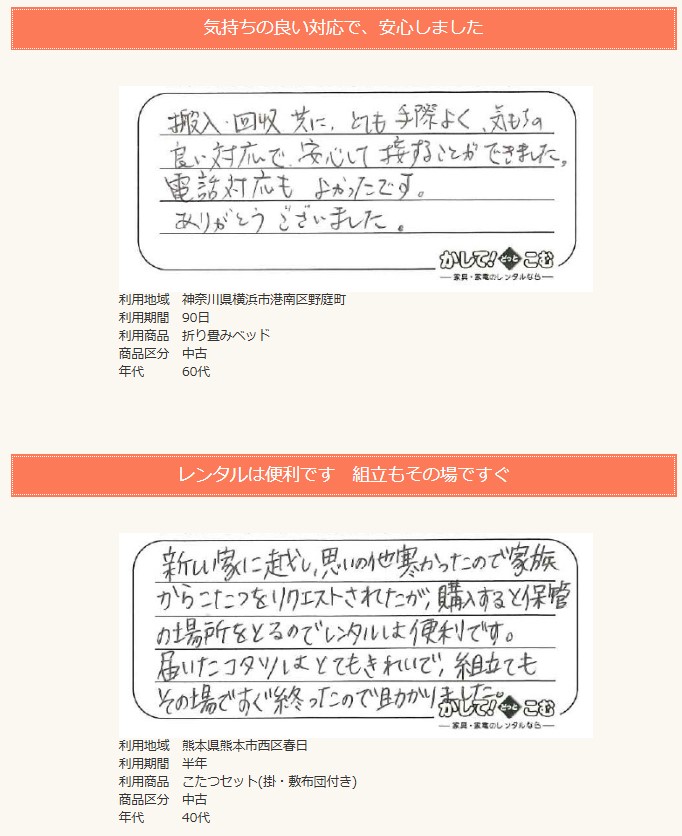 気持ちの良い対応で、安心しました
搬入・回収 共に、とても 手際よく、気もちの
良い対応で、安心して 接することができました。
電話対応も よかったです。
ありがとう ございました。
かして!どっとこむ
家具・家電のレンタルなら
利用地域 神奈川県横浜市港南区野庭町
利用期間 90日
利用商品 折り畳みベッド
商品区分 中古
年代 60代
レンタルは便利です　組立もその場ですぐ
新しい家に越し、思いの他寒かったので家族
からこたつをリクエストされたが、購入すると保管
の場所をとるのでレンタルは便利です。
届いたコタツはとてもきれいで、組立ても
その場ですぐ終ったので助かりました。
かして!どっとこむ
家具・家電のレンタルなら
利用地域 熊本県熊本市西区春日
利用期間 半年
利用商品 こたつセット(掛・敷布団付き)
商品区分 中古
年代 40代